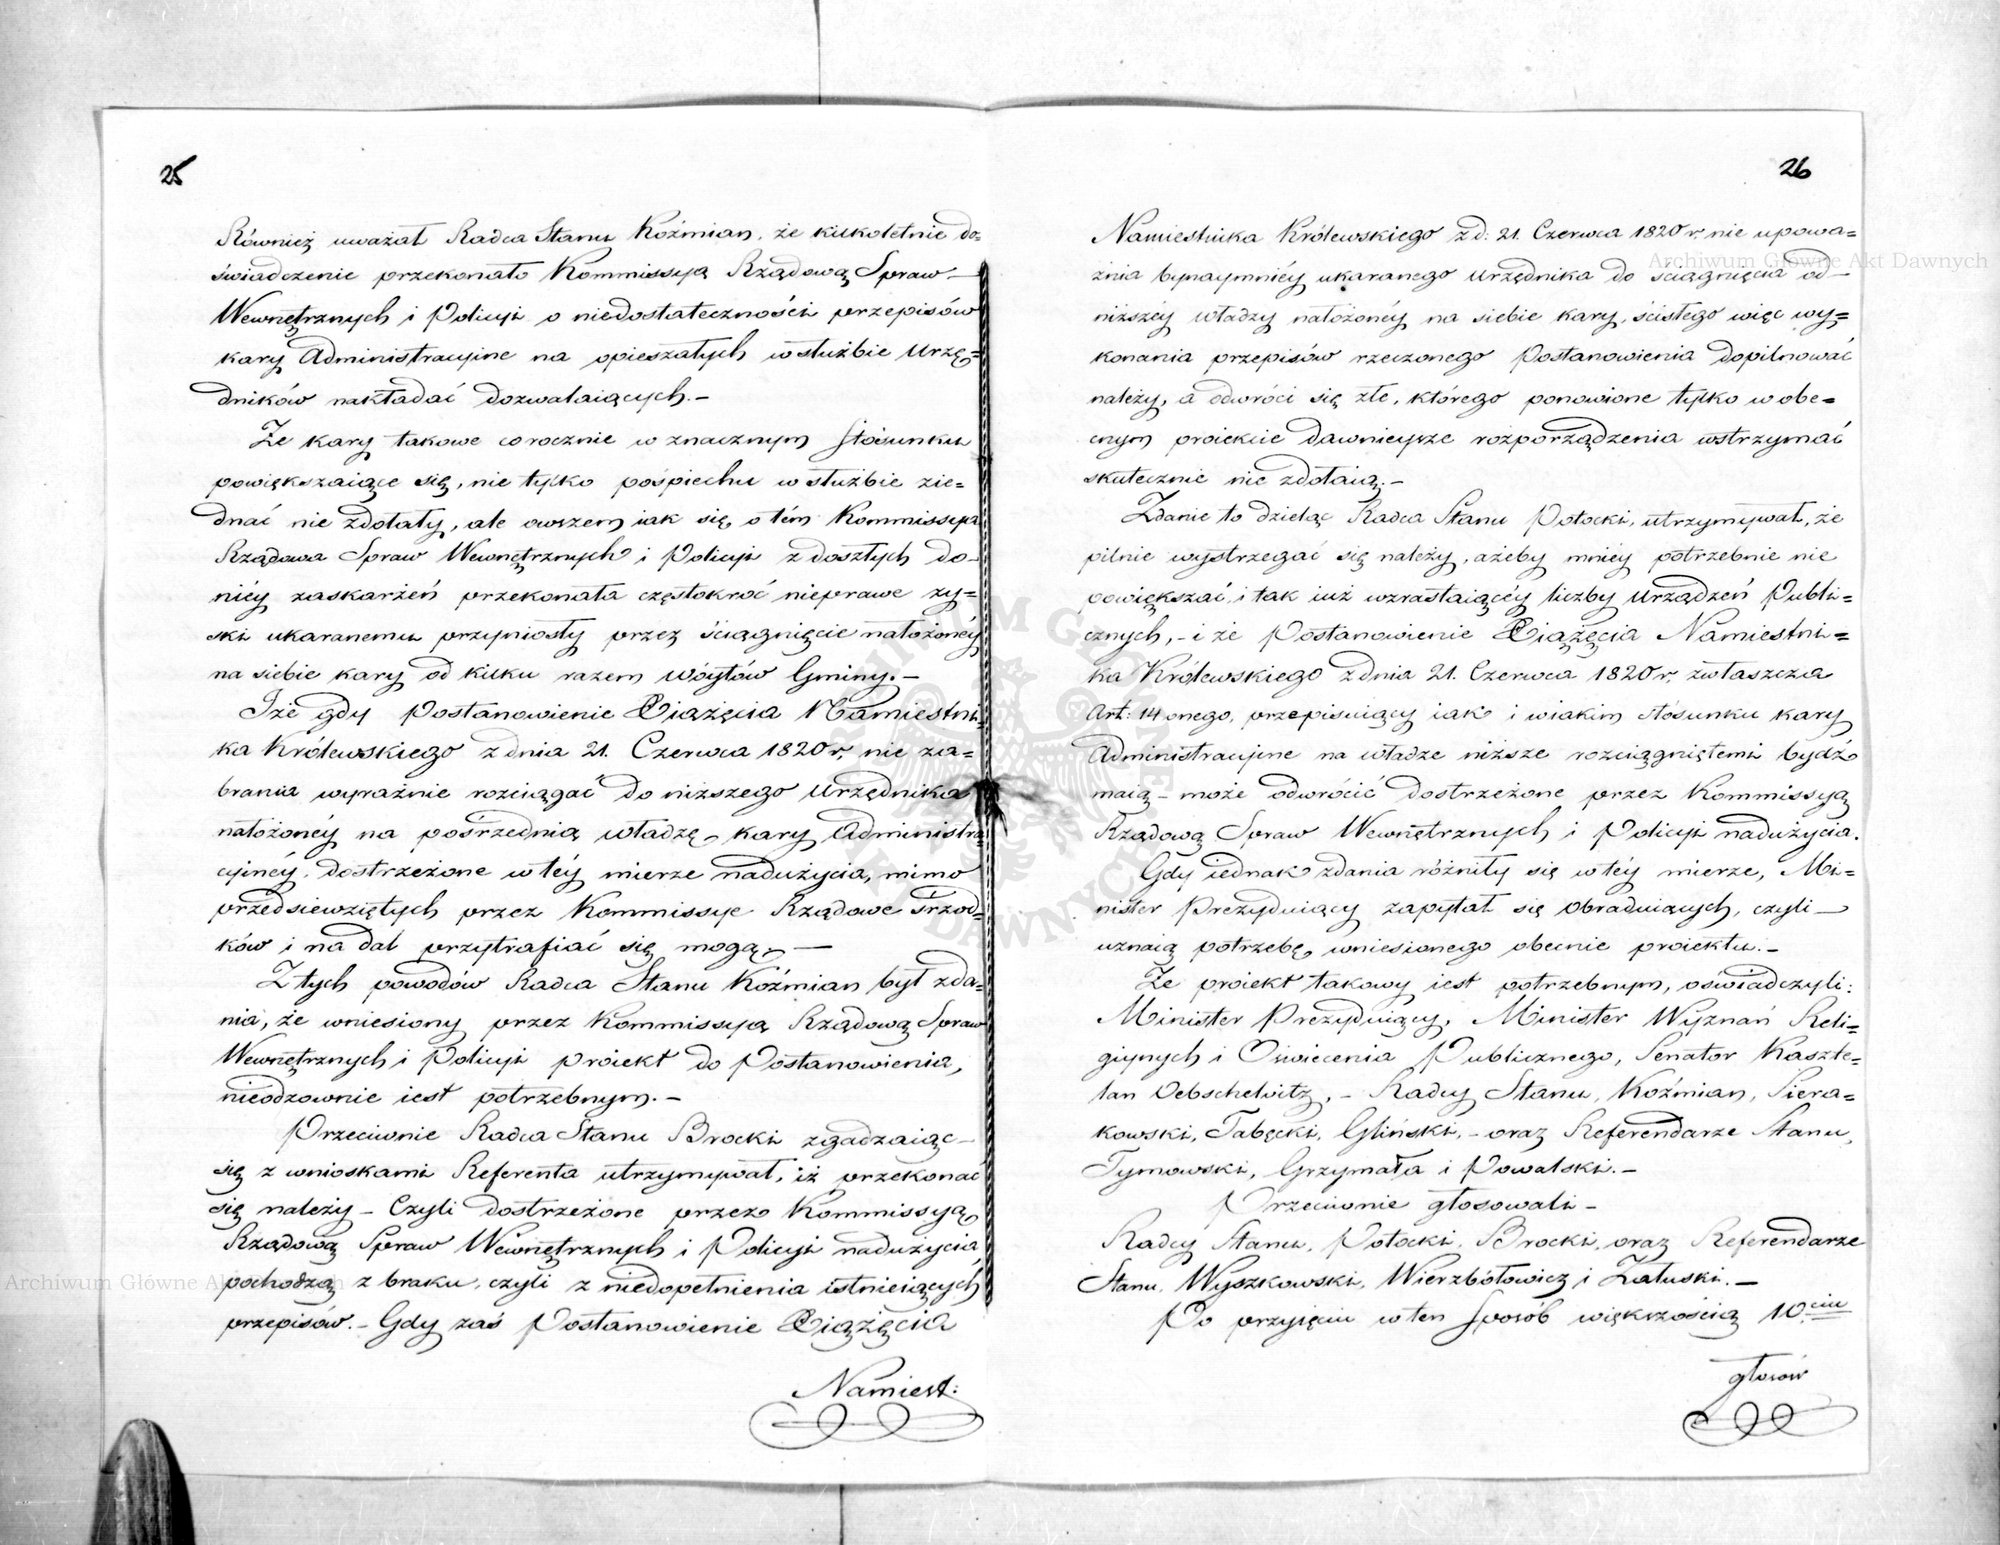 25
Również uważał Radca Stanu Koźmian, że kilkoletnie do=
świadczenie przekonało Kommissyą Rządową Spraw
Wewnętrznych i Policyi o niedostateczności przepisów
kary Administracyjne na opieszałych w służbie Urzę=
dników nakładać dozwalaiących.-
Że kary takowe corocznie w znacznym stósunku
powiększaiące się, nie tylko pośpiechu w służbie zie=
dnać nie zdołały, ale owszem iak się o tém Kommissya
Rządowa Spraw Wewnętrznych i Policyi z doszłych do
niéy zaskarżeń przekonała częstokroć nieprawe zy=
ski ukaranemu przyniosły przez ściągnięcie nałożonéy
na siebie kary od kilku razem Wóytów Gminy.-
Iże gdy Postanowienie Xiążęcia Namiestni=
ka Królewskiego z dnia 21. Czerwca 1820 r. nie za=
brania wyraźnie rozciągać do niższego Urzędnika
nałożonéy na pośrzednią władzę kary Administra
cyinéy, dostrzeżone w téy mierze nadużycia, mimo
przedsiewziętych przez Kommissye Rządowe śrzod=
ków i na dal przytrafiać się mogą.-
Z tych powodów Radca Stanu Koźmian był zda=
nia, że wniesiony przez Kommissyą Rządową Spraw
Wewnętrznych i Policyi proiekt do Postanowienia,
nieodzownie iest potrzebnym.-
Przeciwnie Radca Stanu Brocki zgadzaiąc
się z wnioskami Referenta utrzymywał, iż przekonać
się należy - Czyli dostrzeżone przez Kommissyą
Rządową Spraw Wewnętrznych i Policyi nadużycia
pochodzą z braku, czyli z niedopełnienia istnieiących
przepisów.- Gdy zaś Postanowienie Xiążęcia
Namiest:
26
Namiestnika Królewskiego z d: 21. Czerwca 1820 r. nie upowa=
żnia bynaymniéy ukaranego Urzędnika do ściągnięcia od
niższéy władzy nałożonéy na siebie kary, ścisłego więc wy=
konania przepisów rzeczonego Postanowienia dopilnować
należy, a odwróci się złe, którego ponowione tylko w obe=
cnym proiekcie dawnieysze rozporządzenia wstrzymać
skutecznie nie zdołaią.-
Zdanie to dzieląc Radca Stanu Potocki, utrzymywał, że
pilnie wystrzegać się należy, ażeby mniéy potrzebnie nie
powiększać i tak iuż wzrastaiącéy liczby Urządzeń Publi=
cznych,- i że Postanowienie Xiążęcia Namiestni=
ka Królewskiego z dnia 21. Czerwca 1820 r. zwłaszcza
Art: 14 onego, przepisuiący iak i w iakim stósunku kary
Administracyjne na władze niższe rozciągniętemi bydź
maią - może odwrócić dostrzeżone przez Kommissyą
Rządową Spraw Wewnętrznych i Policyi nadużycia.
Gdy iednak zdania różniły się w téy mierze, Mi=
nister Prezyduiący zapytał się Obraduiących, czyli
uznaią potrzebę wniesionego obecnie proiektu.-
Że proiekt takowy iest potrzebnym, oświadczyli:
Minister Prezyduiący, Minister Wyznań Reli=
giynych i Oświecenia Publicznego, Senator Kaszte=
lan Oebschelwitz,- Radcy Stanu, Koźmian, Siera=
kowski, Tabęcki, Gliński,- oraz Referendarze Stanu,
Tymowski, Grzymała i Powalski.-
Przeciwnie głosowali-
Radcy Stanu, Potocki, Brocki, oraz Referendarze
Stanu, Wyszkowski, Wierzbółowicz i Załuski.-
Po przyięciu w ten sposób większością 10.ciu
głosów
Archiwum Główne Akt Dawnych